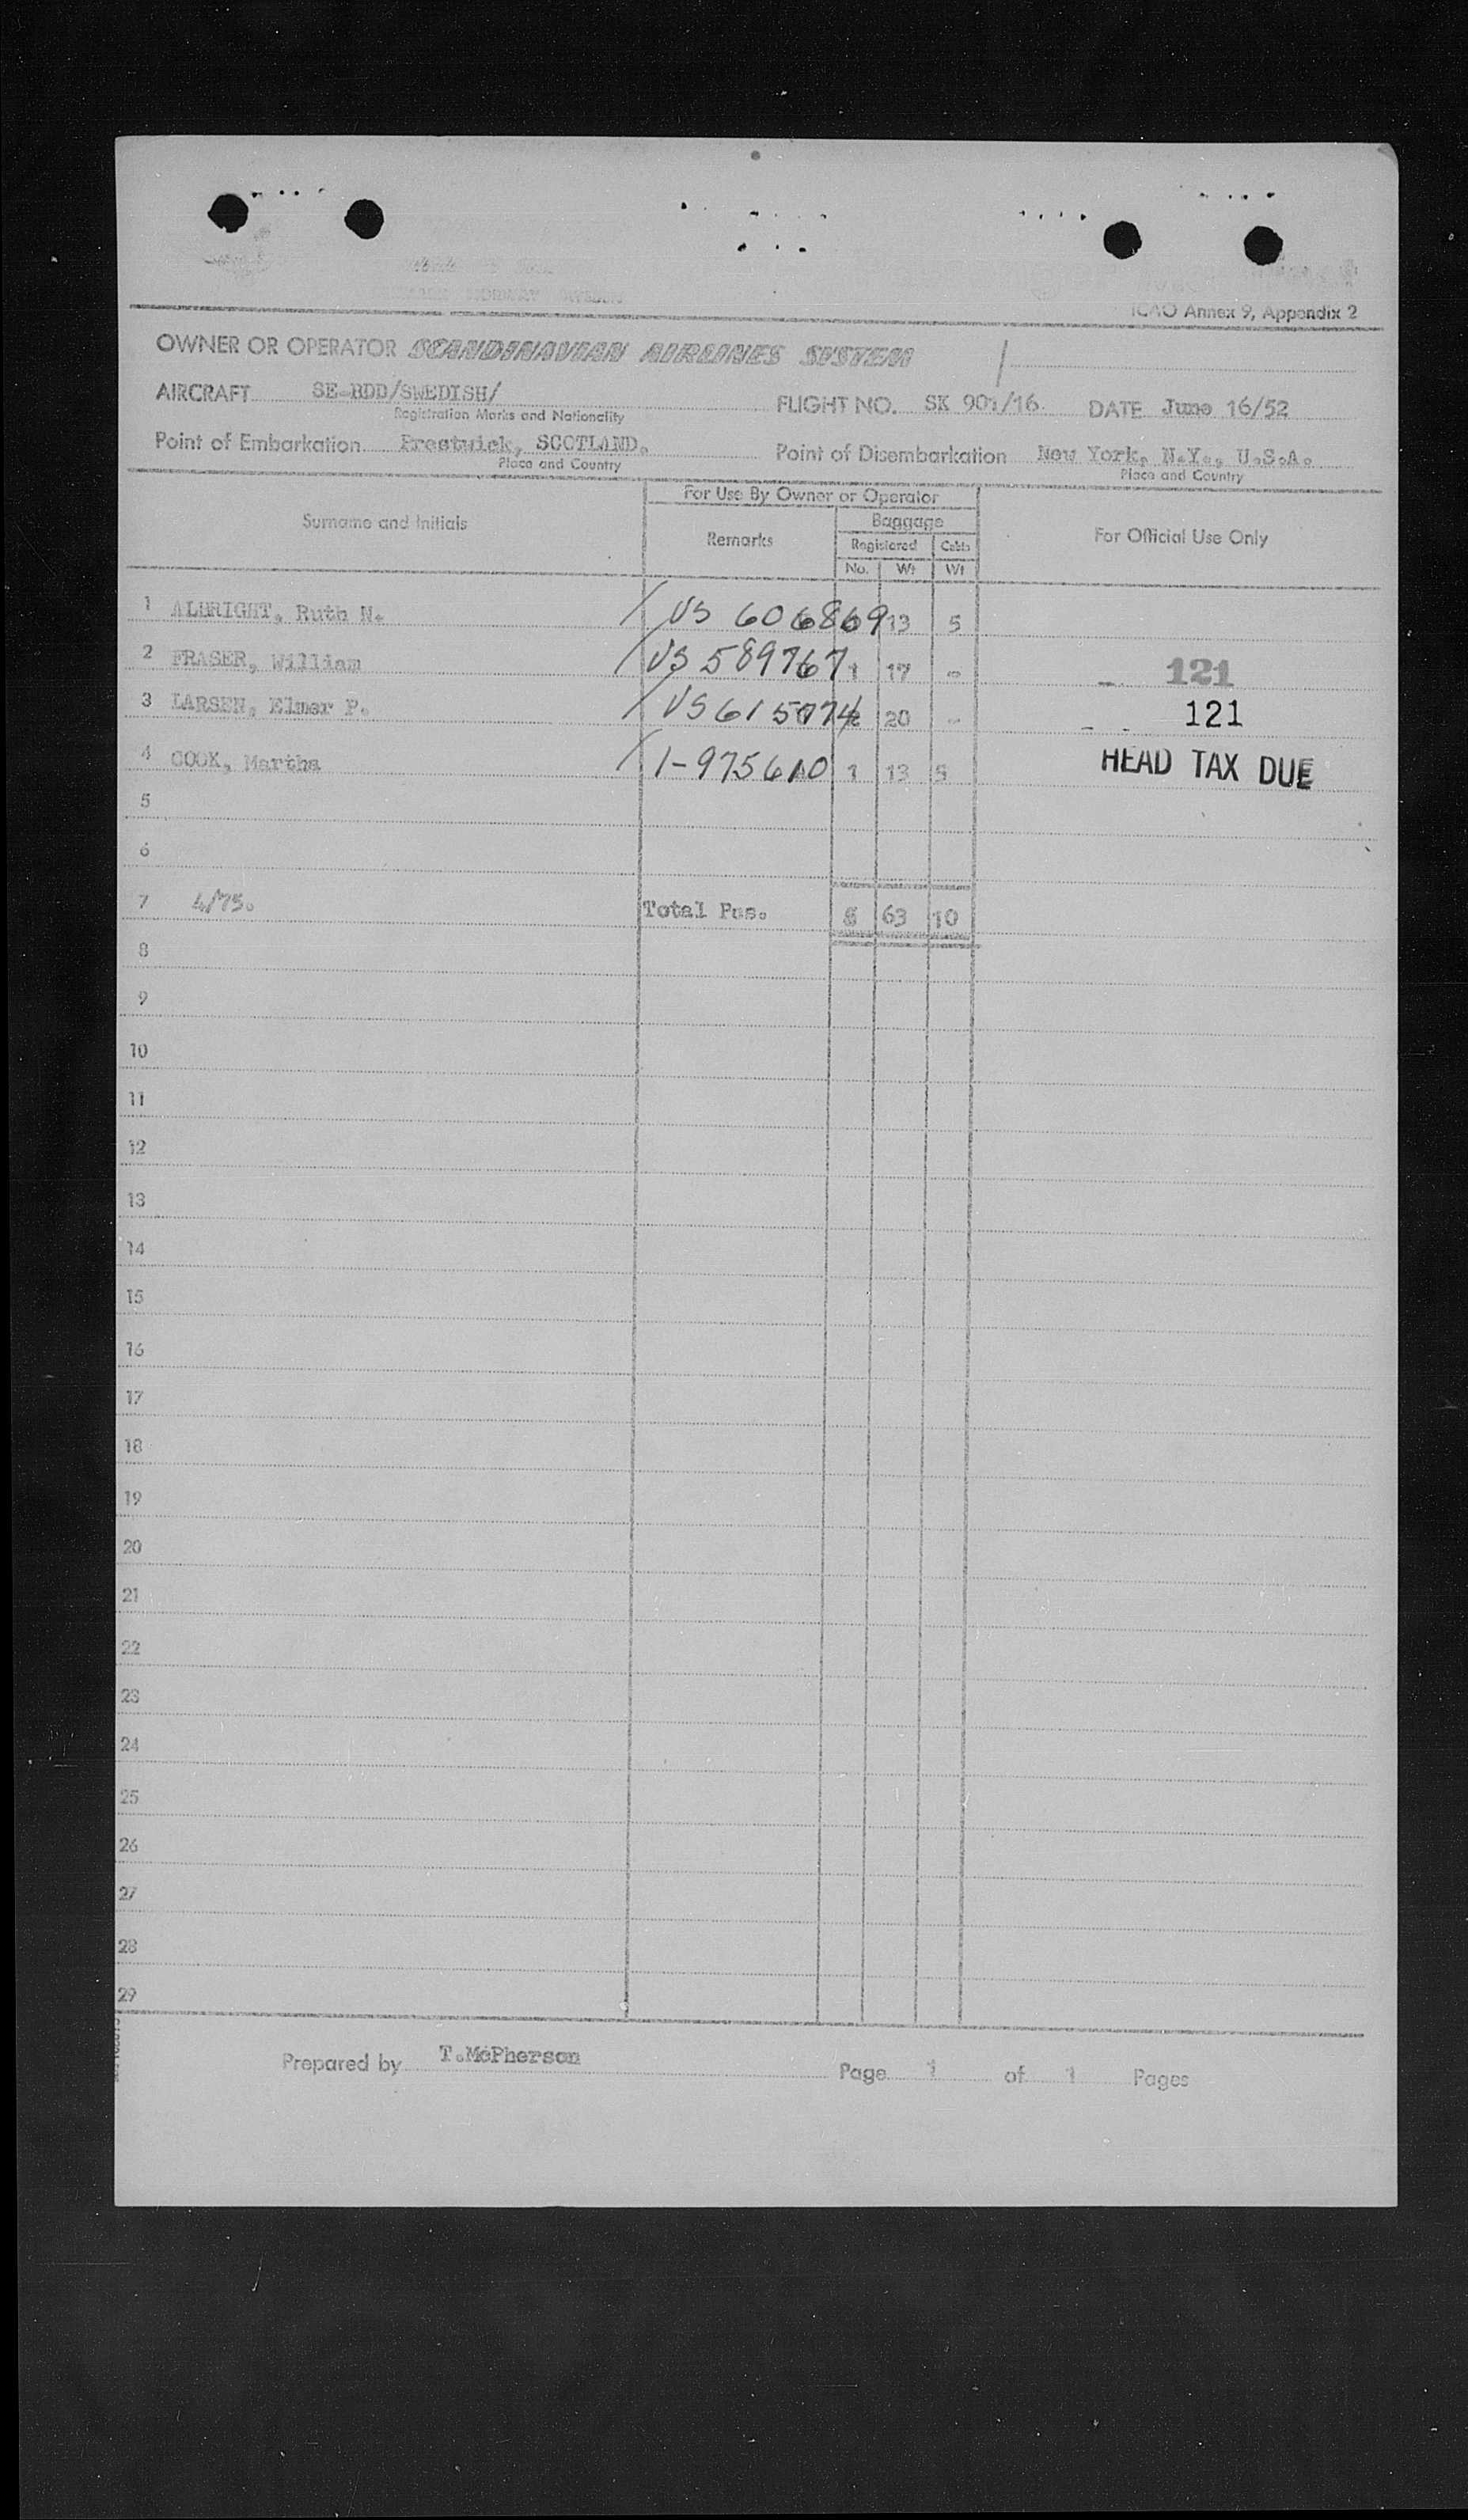 ICAO Annex 9, Appendix 2
OWNER OR OPERATOR SCANDINAVIAN AIRLINES SYSTEM
AIRCRAFT SE-BDD/SWEDISH/ FLIGHT NO. SK 901/16 DATE June 16/52
Registration Marks and Nationality
Point of Embarkation Prestwick, SCOTLAND. Point of Disembarkation New York, N.Y., U.S.A.
Place and Country Place and Country
For Use By Owner or Operator
Surname and Initials Remarks Baggage For Official Use Only
Registered Cabin
No. Wt Wt
1 ALBRIGHT, Ruth N. / VS 606869 13 5
2 FRASER, William / VS 589767 1 17 - 121
3 LARSEN, Elmer P. / VS 615074 2 20 - 121
4 COOK, Martha / 1-975610 1 13 5 HEAD TAX DUE
5
6
7 4/75. Total Pus. 5 63 10
8
9
10
11
12
13
14
15
16
17
18
19
20
21
22
23
24
25
26
27
28
29
Prepared by T.McPherson Page 1 of 1 Pages